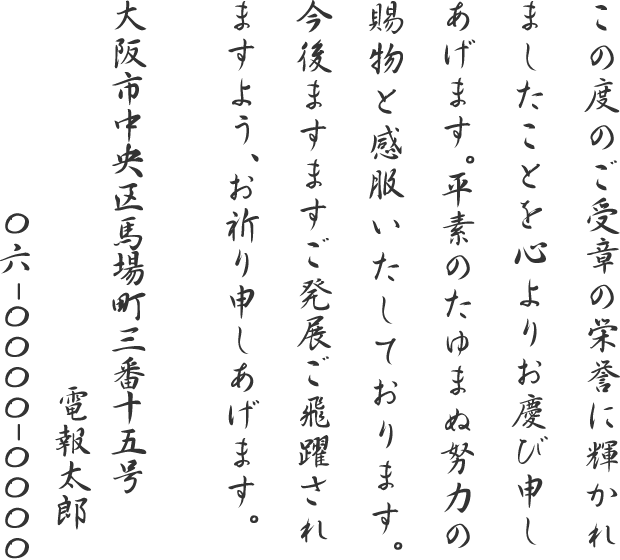 この度のご受章の栄誉に輝かれ
ましたことを心よりお慶び申し
あげます。平素のたゆまぬ努力の
賜物と感服いたしております。
今後ますますご発展ご飛躍され
ますよう、お祈り申しあげます。
大阪市中央区馬場町三番十五号
電報太郎
〇六-〇〇〇〇-〇〇〇〇